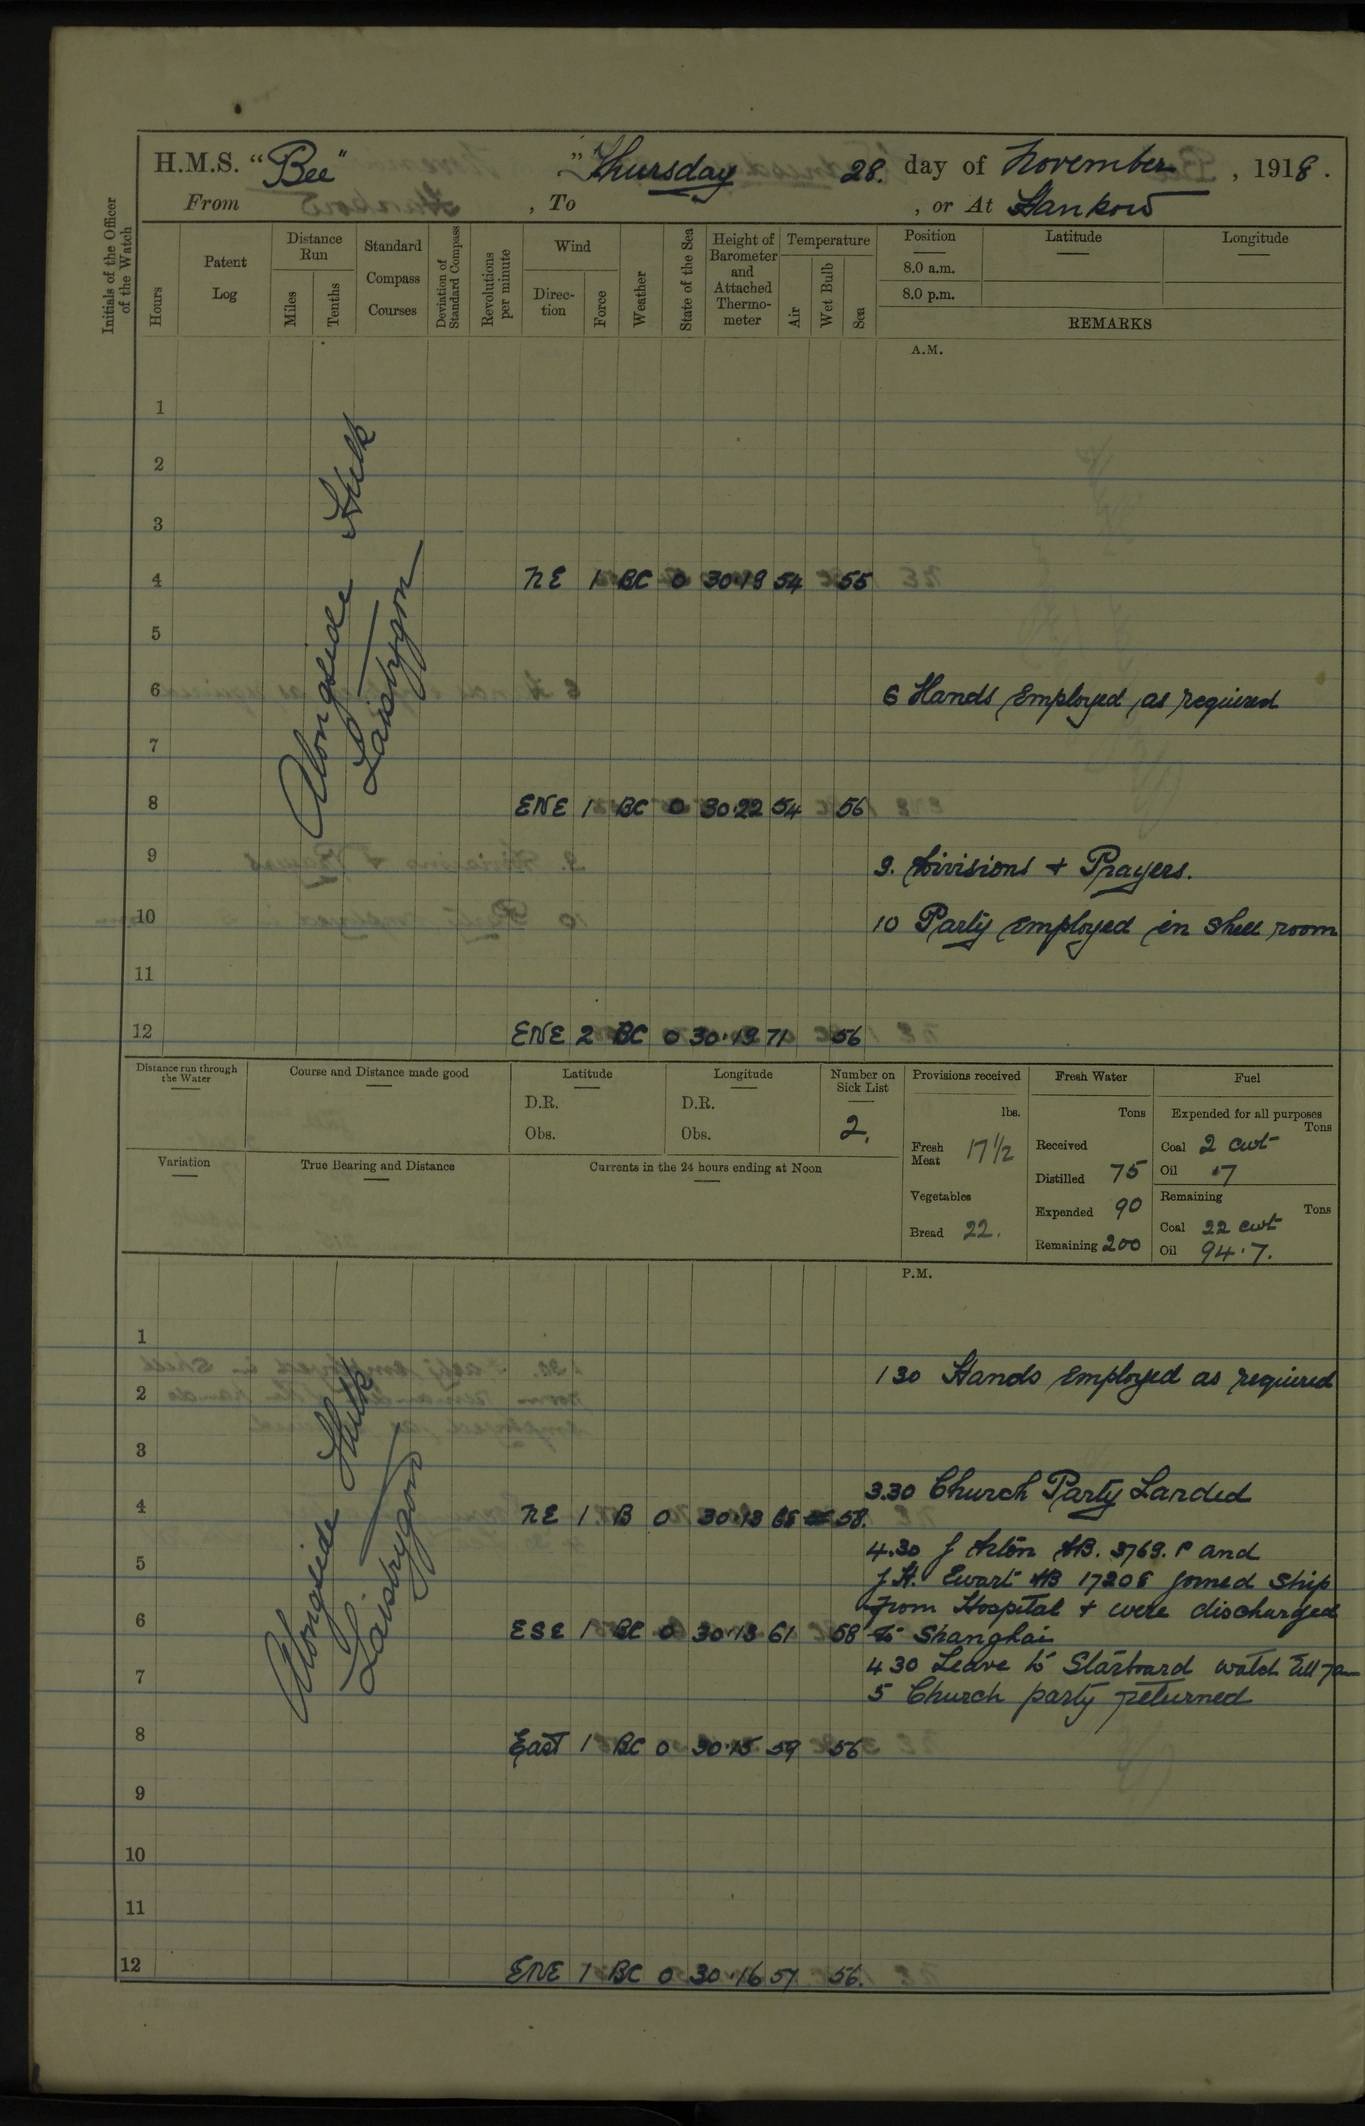 H.M.S. “Bee” ” Thursday 28. day of November , 1918 .
From , To , or At Hankow
Initials of the Officer of the Watch
Hours
Patent Log
Distance Run
Miles
Tenths
Standard Compass Courses
Deviation of Standard Compass
Revolutions per minute
Wind
Direc-tion
Force
Weather
State of the Sea
Height of Barometer and Attached Thermo-meter
Temperature
Air
Wet Bulb
Sea
Position
8.0 a.m.
8.0 p.m.
Latitude
Longitude
REMARKS
A.M.
Alongside Hulk
Laistrygon
1
2
3
4 NE 1 BC 0 30·19 54 55
5
6 6 Hands employed as required
7
8 ENE 1 BC 0 30·22 54 56
9 9. Divisions + Prayers.
10 10 Party employed in shell room
11
12 ENE 2 BC 0 30·19 71 56
Distance run through the Water
Course and Distance made good
Latitude
D.R.
Obs.
Longitude
D.R.
Obs.
Number on Sick List
2.
Variation
True Bearing and Distance
Currents in the 24 hours ending at Noon
Provisions received
lbs.
Fresh Meat 17 1/2
Vegetables
Bread 22.
Fresh Water
Tons
Received
Distilled 75
Expended 90
Remaining 200
Fuel
Expended for all purposes
Tons
Coal 2 cwt
Oil ·7
Remaining
Tons
Coal 22 cwt
Oil 94·7.
P.M.
Alongside Hulk
Laistrygon
1
2 1 30 Hands employed as required
3
3.30 Church Party Landed
4 NE 1 B 0 30·13 58.
4.30 J AB. 3769. P and
5 J.H. Ewart AB 17206 joined ship
from Hospital + were discharged
6 ESE 1 BC 0 30·13 61 58 to Shanghai
4 30 Leave to Starboard watch till 7am
7 5 Church party returned
8 East 1 BC 0 30·15 59 56
9
10
11
12 ENE 1 BC 0 30·16 57 56.